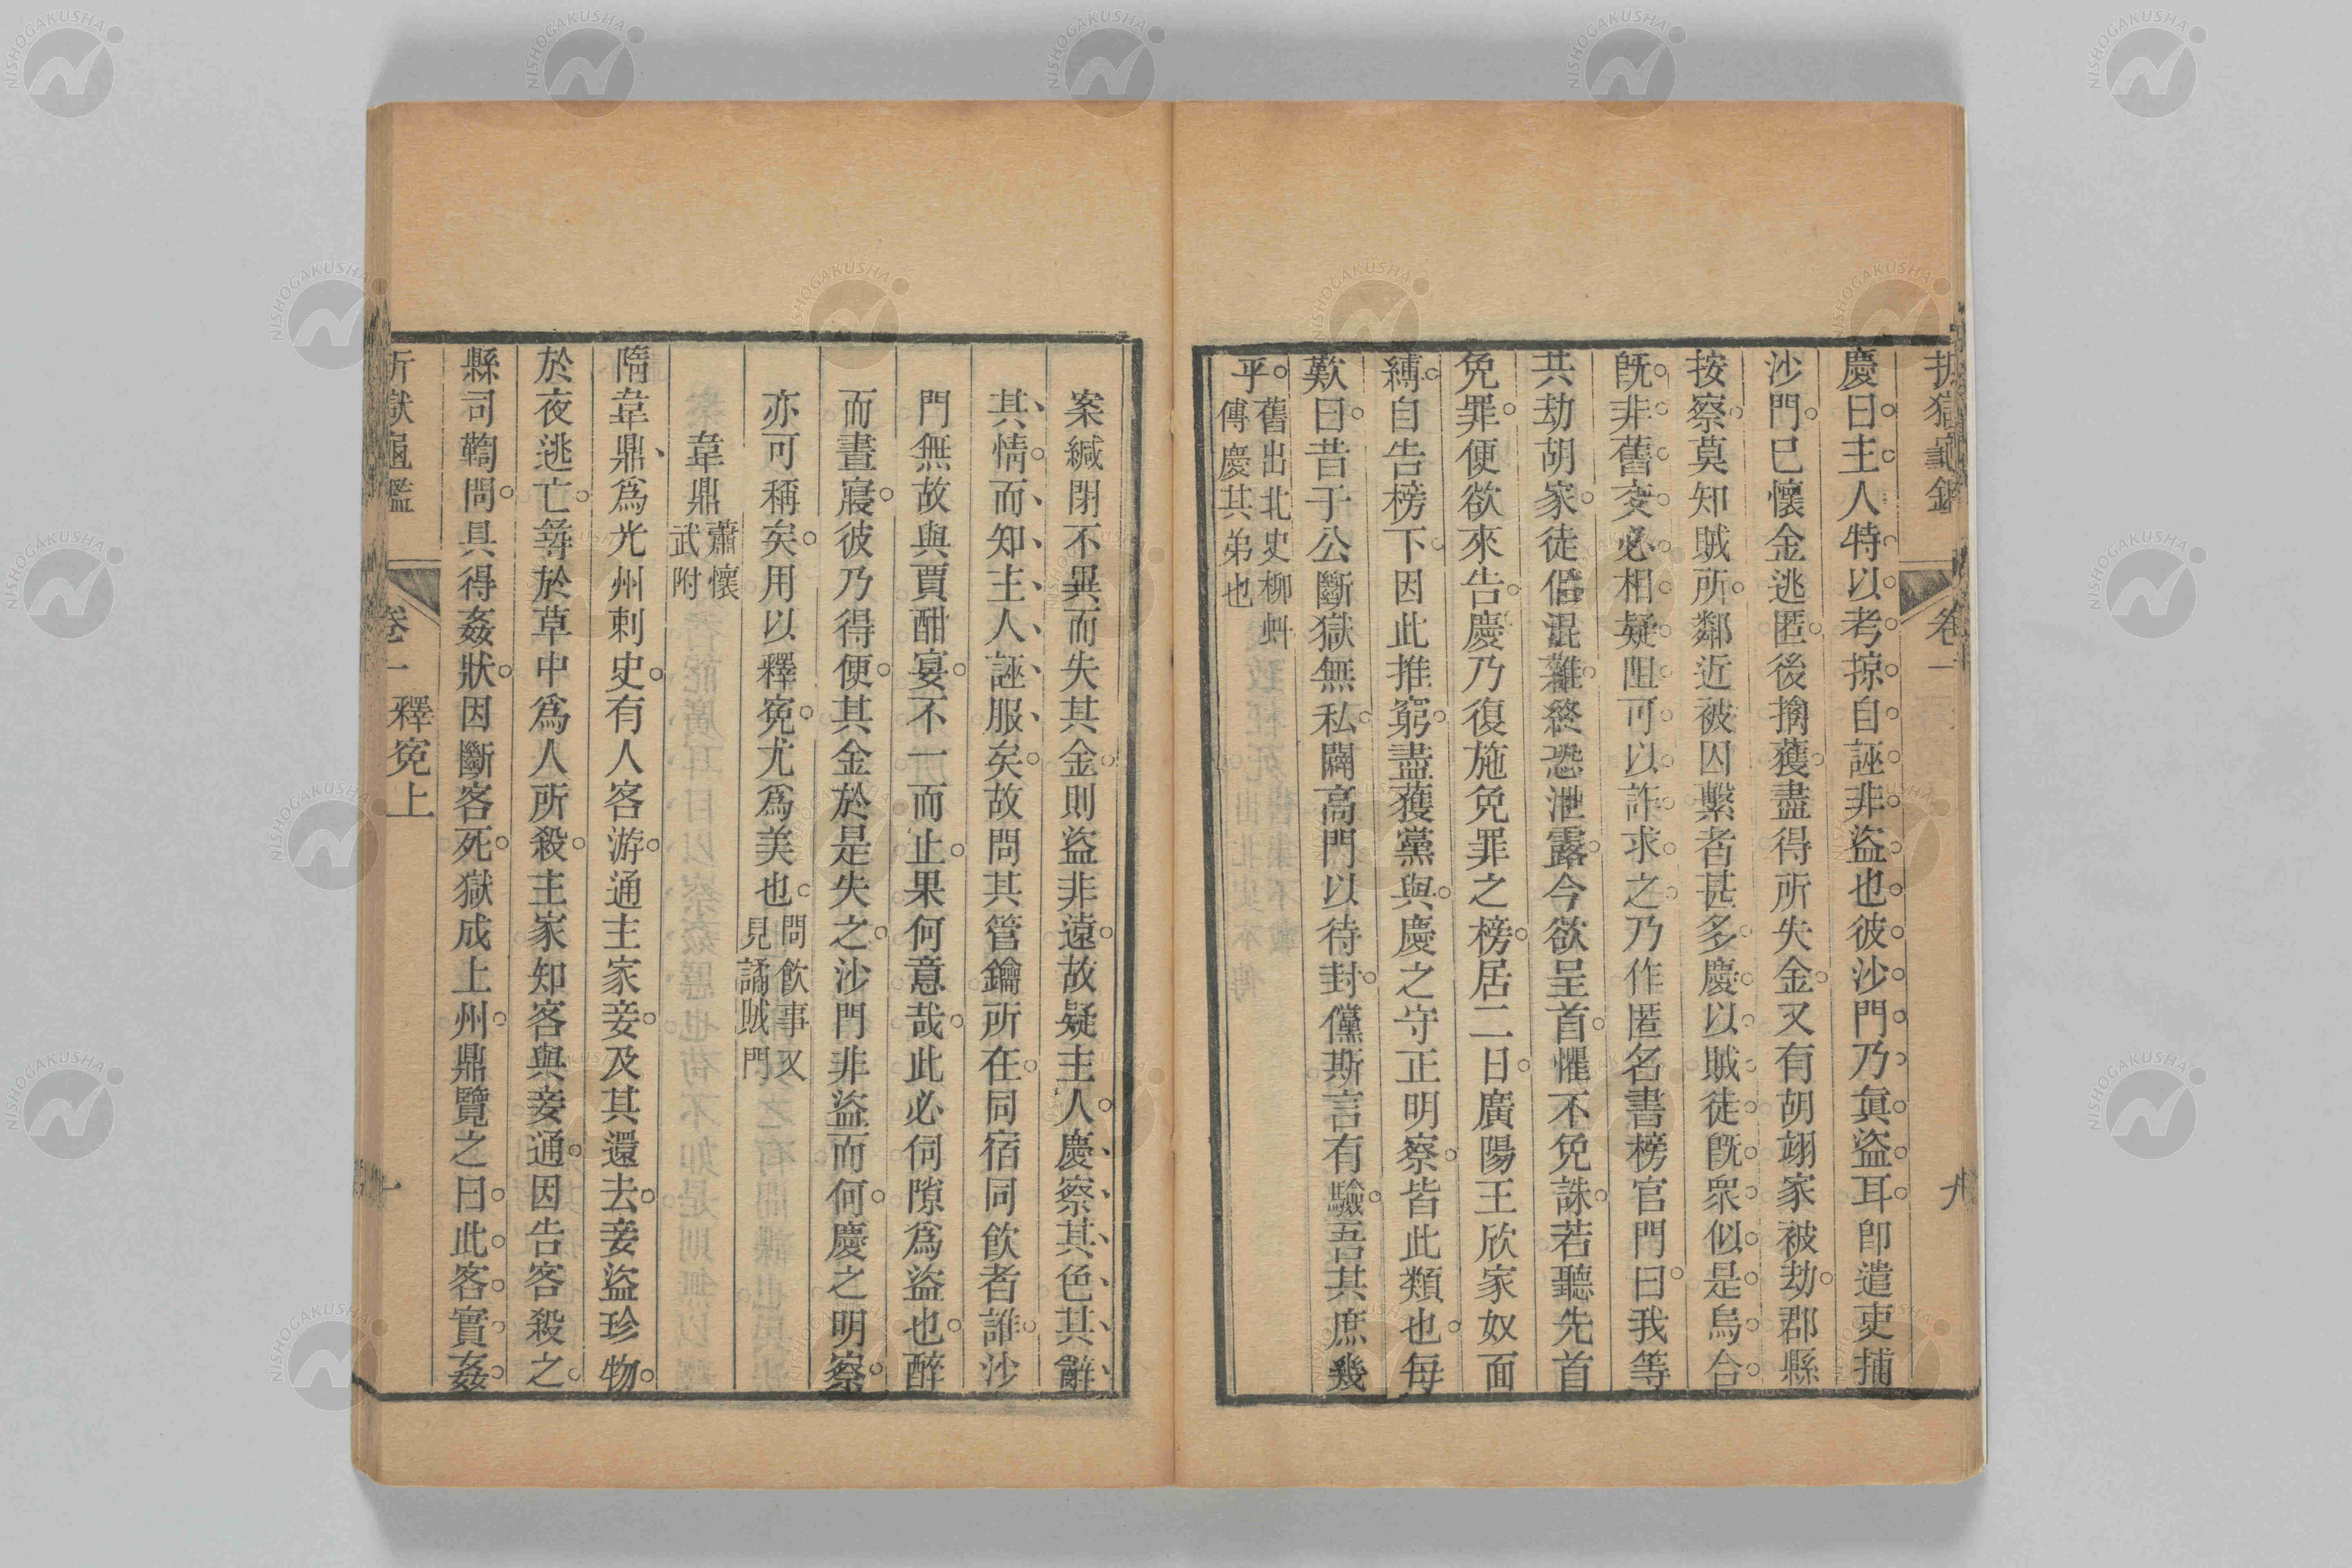 折獄龜鑑 卷一 九
慶曰主人特以考掠自誣非盜也彼沙門乃眞盜耳卽遣吏捕
沙門已懷金逃匿後擒獲盡得所失金又有胡翊家被劫郡縣
按察莫知賊所鄰近被囚繫者甚多慶以賊徒旣衆似是烏合
旣非舊交必相疑阻可以詐求之乃作匿名書榜官門曰我等
共劫胡家徒侶混雜終恐泄露今欲呈首懼不免誅若聽先首
免罪便欲來告慶乃復施免罪之榜居二日廣陽王欣家奴面
縛自告榜下因此推窮盡獲黨與慶之守正明察皆此類也每
歎曰昔于公斷獄無私闢高門以待封儻斯言有驗吾其庶幾
乎舊出北史柳蚪
傳慶其弟也
案緘閉不異而失其金則盜非遠故疑主人慶察其色其辭
其情而知主人誣服矣故問其管鑰所在同宿同飲者誰沙
門無故與賈酣宴不一而止果何意哉此必伺隙爲盜也醉
而晝寢彼乃得便其金於是失之沙門非盜而何慶之明察
亦可稱矣用以釋寃尤爲美也問飲事又
見譎賊門
韋鼎蕭懷
武附
隋韋鼎爲光州刺史有人客游通主家妾及其還去妾盜珍物
於夜逃亡尋於草中爲人所殺主家知客與妾通因告客殺之
縣司鞫問具得姦狀因斷客死獄成上州鼎覽之曰此客實姦
折獄龜鑑 卷一 釋寃上